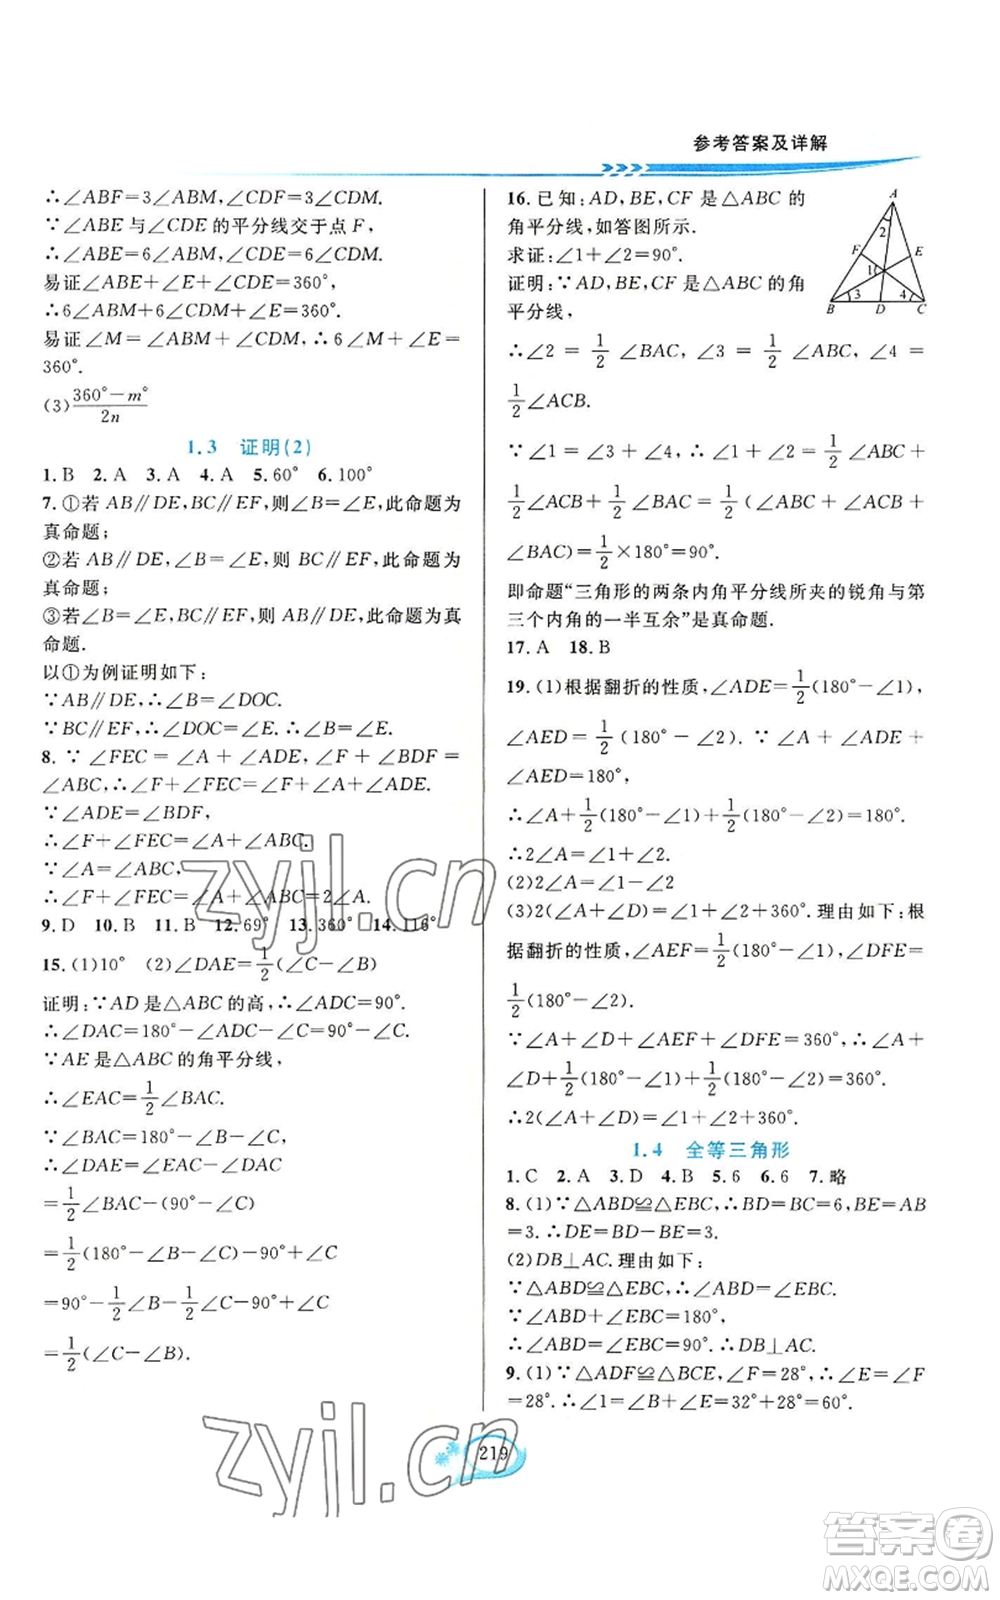 参考答案及详解
∴∠ABF=3∠ABM,∠CDF=3∠CDM.
∵∠ABE与∠CDE的平分线交于点F,
∴∠ABE=6∠ABM,∠CDE=6∠CDM.
易证∠ABE+∠E+∠CDE=360°,
∴6∠ABM+6∠CDM+∠E=360°.
易证∠M=∠ABM+∠CDM,∴6∠M+∠E=
360°.
(3)\frac{360°-m°}{2n}
1.3 证明(2)
1.B 2.A 3.A 4.A 5.60° 6.100°
7.①若AB∥DE,BC∥EF,则∠B=∠E,此命题为
真命题;
②若AB∥DE,∠B=∠E,则BC∥EF,此命题为
真命题;
③若∠B=∠E,BC∥EF,则AB∥DE,此命题为真
命题.
以①为例证明如下:
∵AB∥DE,∴∠B=∠DOC.
∵BC∥EF,∴∠DOC=∠E.∴∠B=∠E.
8.∵∠FEC=∠A+∠ADE,∠F+∠BDF=
∠ABC,∴∠F+∠FEC=∠F+∠A+∠ADE.
∵∠ADE=∠BDF,
∴∠F+∠FEC=∠A+∠ABC.
∵∠A=∠ABC,
∴∠F+∠FEC=∠A+∠ABC=2∠A.
9.D 10.B 11.B 12.69° 13.360° 14.116°
15.(1)10° (2)∠DAE=\frac{1}{2}(∠C-∠B)
证明:∵AD是△ABC的高,∴∠ADC=90°.
∴∠DAC=180°-∠ADC-∠C=90°-∠C.
∵AE是△ABC的角平分线,
∴∠EAC=\frac{1}{2}∠BAC.
∵∠BAC=180°-∠B-∠C,
∴∠DAE=∠EAC-∠DAC
=\frac{1}{2}∠BAC-(90°-∠C)
=\frac{1}{2}(180°-∠B-∠C)-90°+∠C
=90°-\frac{1}{2}∠B-\frac{1}{2}∠C-90°+∠C
=\frac{1}{2}(∠C-∠B).
16.已知:AD,BE,CF是△ABC的
角平分线,如答图所示.
求证:∠1+∠2=90°.
证明:∵AD,BE,CF是△ABC的角
平分线,
A
2
F
E
1
3
4
B
D
C
∴∠2=\frac{1}{2}∠BAC,∠3=\frac{1}{2}∠ABC,∠4=
\frac{1}{2}∠ACB.
∵∠1=∠3+∠4,∴∠1+∠2=\frac{1}{2}∠ABC+
\frac{1}{2}∠ACB+\frac{1}{2}∠BAC=\frac{1}{2}(∠ABC+∠ACB+
∠BAC)=\frac{1}{2}×180°=90°.
即命题“三角形的两条内角平分线所夹的锐角与第
三个内角的一半互余”是真命题.
17.A 18.B
19.(1)根据翻折的性质,∠ADE=\frac{1}{2}(180°-∠1),
∠AED=\frac{1}{2}(180°-∠2).∵∠A+∠ADE+
∠AED=180°,
∴∠A+\frac{1}{2}(180°-∠1)+\frac{1}{2}(180°-∠2)=180°.
∴2∠A=∠1+∠2.
(2)2∠A=∠1-∠2
(3)2(∠A+∠D)=∠1+∠2+360°.理由如下:根
据翻折的性质,∠AEF=\frac{1}{2}(180°-∠1),∠DFE=
\frac{1}{2}(180°-∠2).
∵∠A+∠D+∠AEF+∠DFE=360°,∴∠A+
∠D+\frac{1}{2}(180°-∠1)+\frac{1}{2}(180°-∠2)=360°.
∴2(∠A+∠D)=∠1+∠2+360°.
1.4 全等三角形
1.C 2.A 3.D 4.B 5.6 6.6 7.略
8.(1)∵△ABD≌△EBC,∴BD=BC=6,BE=AB
=3.∴DE=BD-BE=3.
(2)DB⊥AC.理由如下:
∵△ABD≌△EBC,∴∠ABD=∠EBC.
∵∠ABD+∠EBC=180°,
∴∠ABD=∠EBC=90°.∴DB⊥AC.
9.(1)∵△ADF≌△BCE,∠F=28°,∴∠E=∠F
=28°.∴∠1=∠B+∠E=32°+28°=60°.
219
zyjl.cn
zyjl.cn
答案卷
MXQE.COM